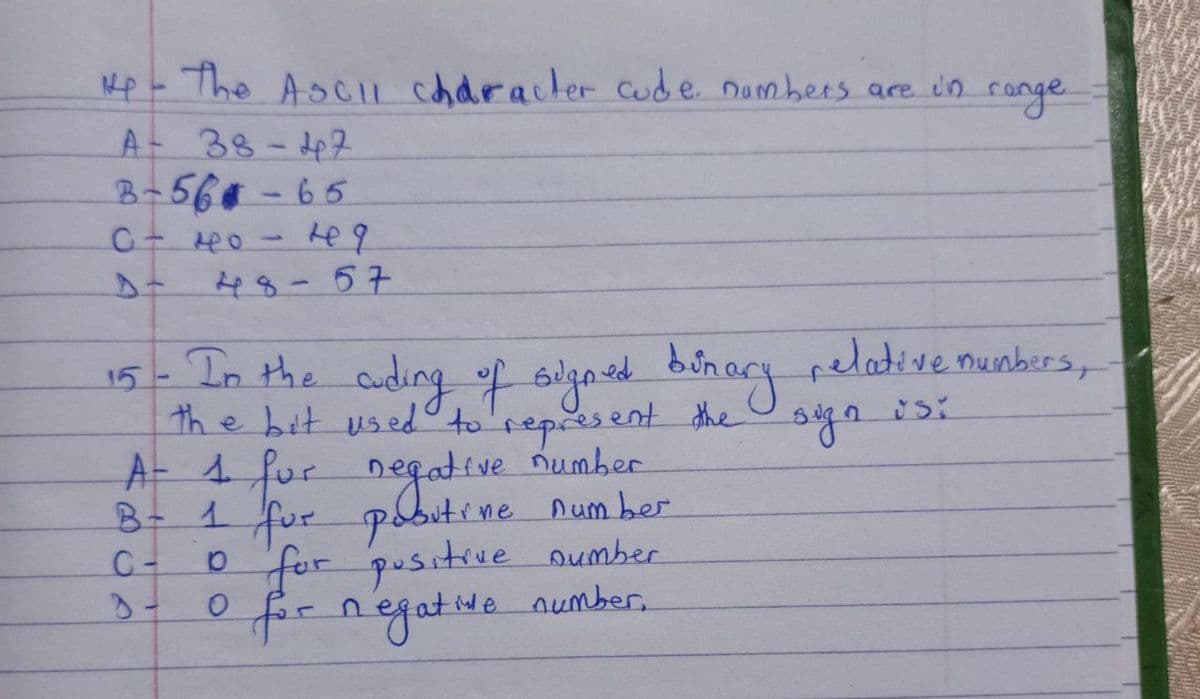 14 - The ASCII character code numbers are in range
A - 38 - 47
B - 56 - 65
C - 40 - 49
D - 48 - 57
15 - In the coding of signed binary relative numbers,
the bit used to represent the sign is:
A - 1 for negative number
B - 1 for positive number
C - 0 for positive number
D - 0 for negative number.